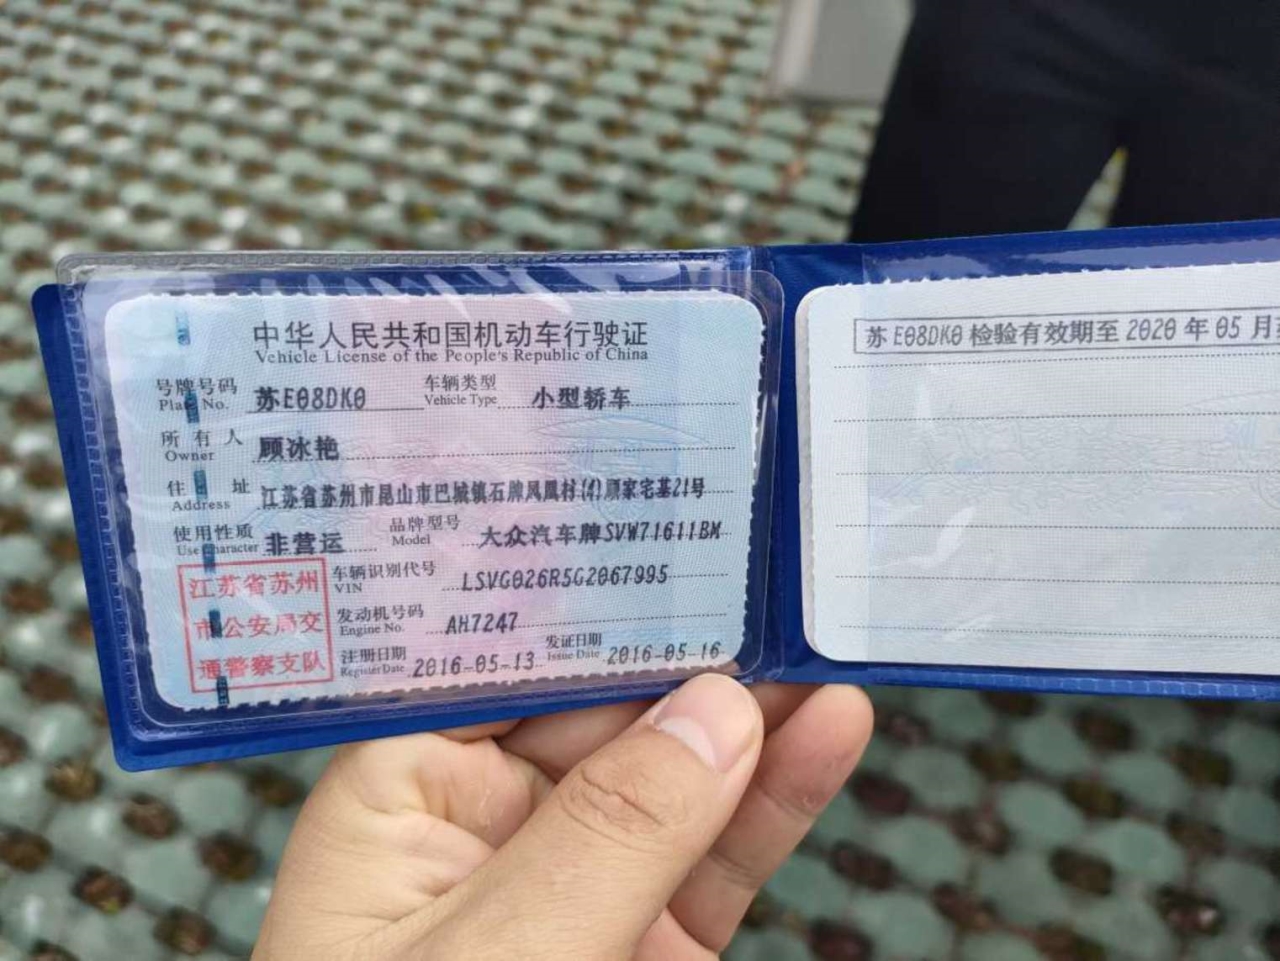 中华人民共和国机动车行驶证
Vehicle License of the People's Republic of China
号牌号码 苏E08DK0 车辆类型 小型轿车
Plate No. Vehicle Type
所有人 顾冰艳
Owner
住址 江苏省苏州市昆山市巴城镇石牌凤凰村(4)顾家宅基21号
Address
使用性质 非营运 品牌型号 大众汽车牌SVW71611BM
Use Character Model
江苏省苏州
市公安局交
通警察支队
车辆识别代号 LSVG026R5G2067995
VIN
发动机号码 AH7247
Engine No.
注册日期 2016-05-13 发证日期 2016-05-16
Register Date Issue Date
苏E08DK0检验有效期至2020年05月